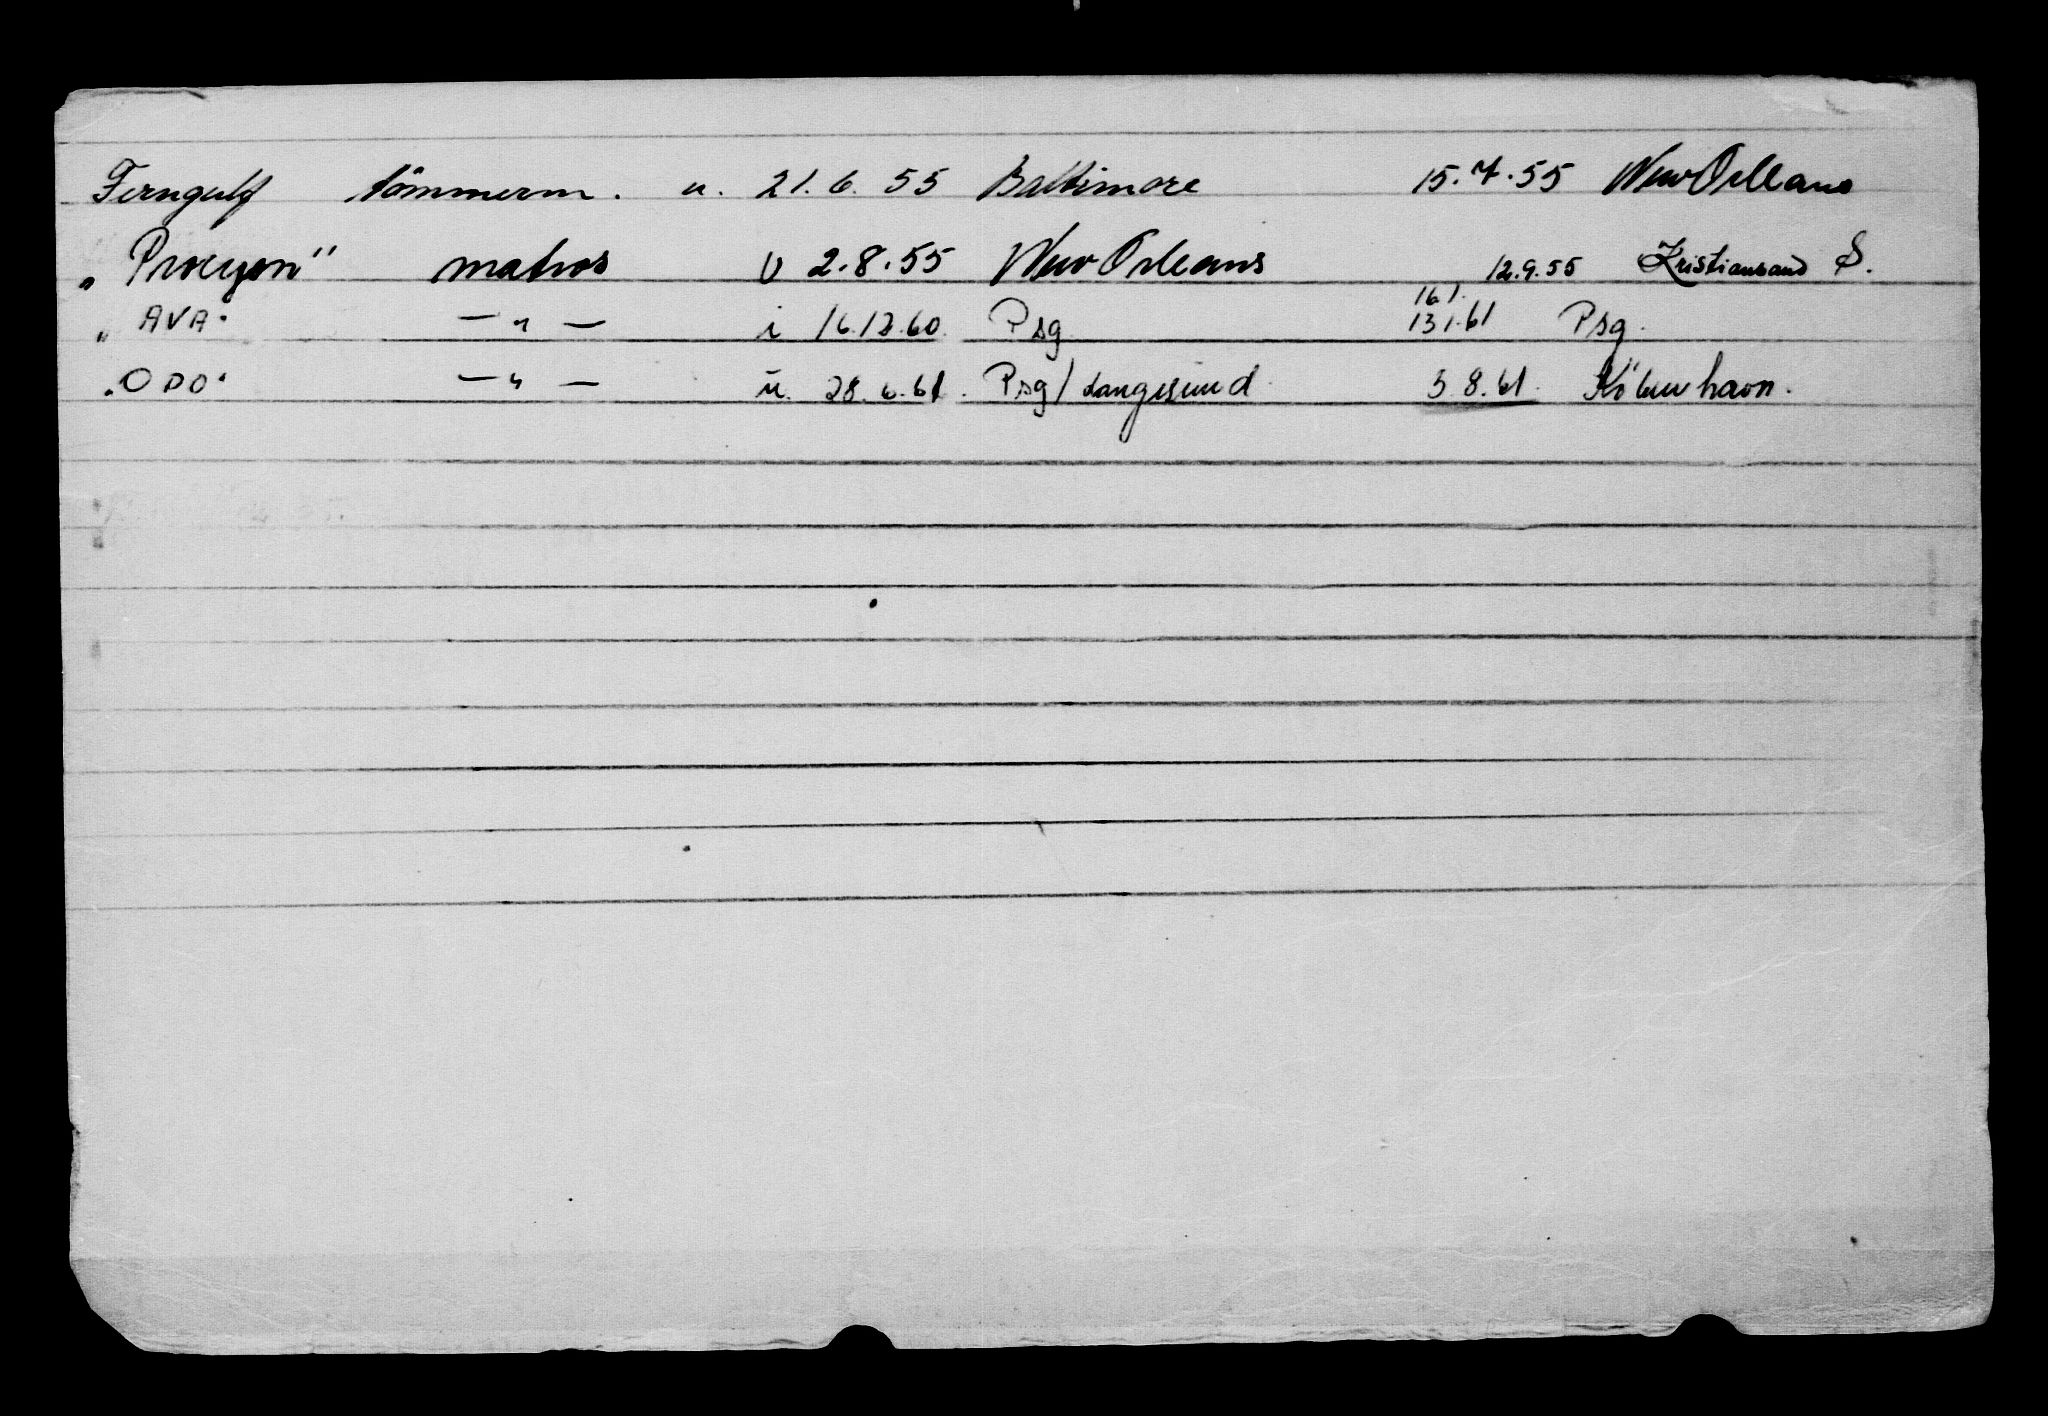 Ferngulf tömmerm. u. 21.6.55 Baltimore 15.7.55 New Orleans
"Procyon" matros U 2.8.55 New Orleans 12.9.55 Kristiansand S.
16.1.
"AVA" — " — i 16.12.60. Psg 13 1.61 Psg.
"ODO" — " — u. 28.6.61. Psg/Langesund 3 8.61. København.